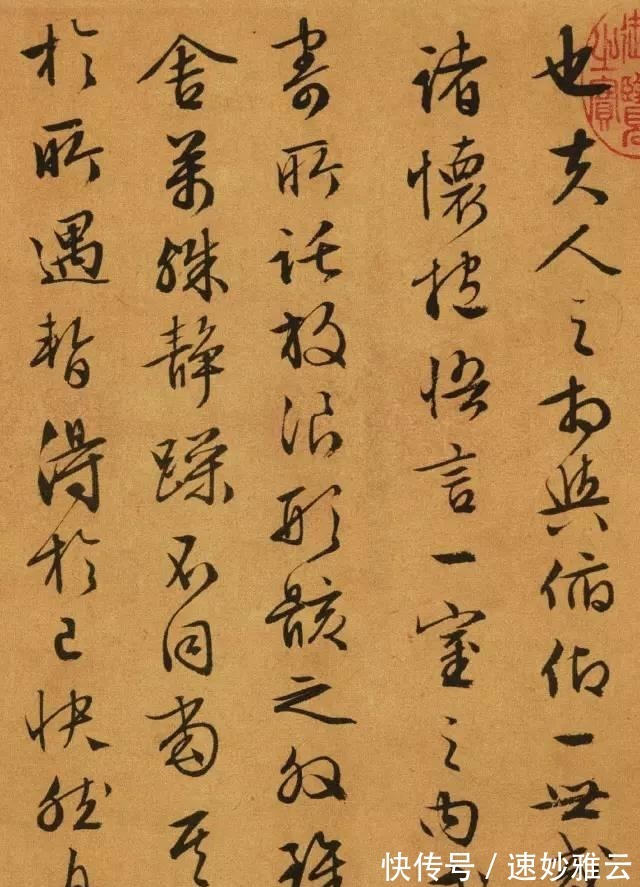 也夫人之相與俯仰一世或
諸懷抱悟言一室之内
寄所託放浪形骸之外雖
舍萬殊靜躁不同當其
於所遇暫得於己快然自
御覽之寶
快传号 / 速妙雅云